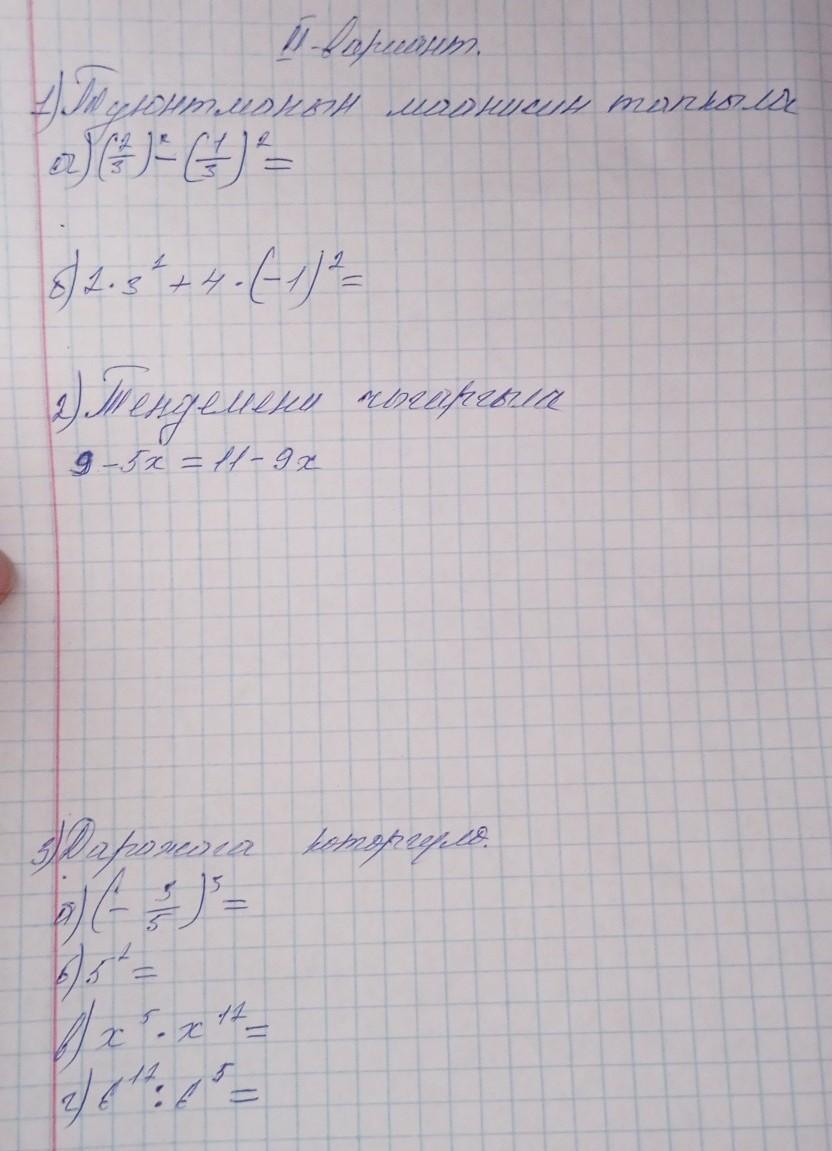 II-вариант.
1) Туюнтманын маанисин тапкыла
а) (2/3)² - (1/3)² =
б) 2·3² + 4·(-1)² =
2) Тендемени чыгаргыла
9 - 5x = 11 - 9x
3) Даражага которгула.
а) (- 3/5)³ =
б) 5² =
в) x⁵ · x¹² =
г) c¹² : c⁵ =